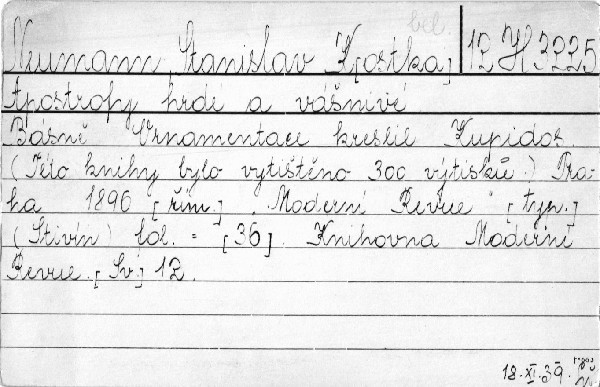 bel.
Neumann, Stanislav K[ostka] 12 H 3225
Apostrofy hrdé a vášnivé
Básně Ornamentace kreslil Kupidos.
(Této knihy bylo vytištěno 300 výtisků.) Pra-
ha 1896 [řím.]. Moderní Revue [typ.]
(Stivín) fol. = [36]. Knihovna Moderní
Revue. [Sv.] 12.
18.XI.39.